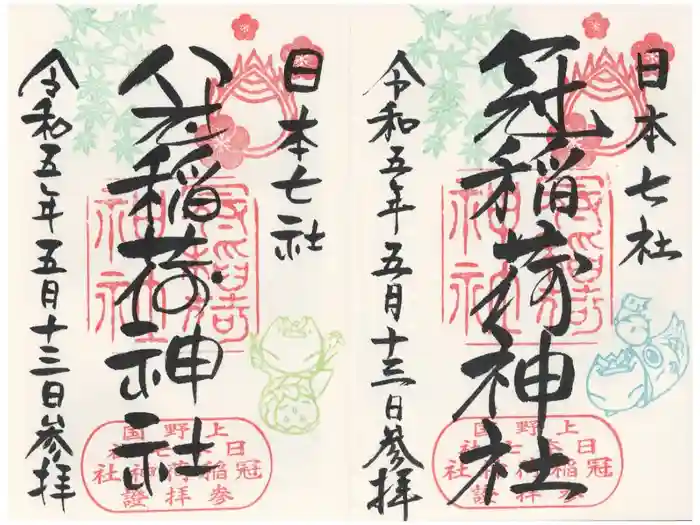 日本七社
冠稲荷神社
令和五年五月十三日参拝
冠稲荷神社
上野国
日本七社
冠稲荷神社
参拝證
日本七社
冠稲荷神社
令和五年五月十三日参拝
冠稲荷神社
上野国
日本七社
冠稲荷神社
参拝證